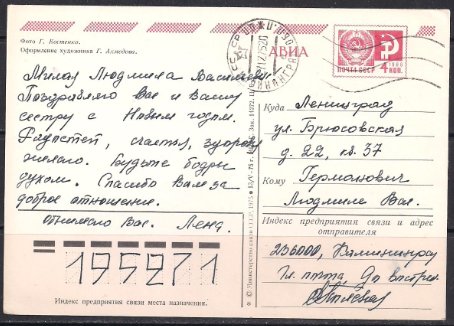 Фото Г. Костенко.
Оформление художника Г. Ахмедова.
АВИА
ПОЧТА СССР
4 КОП.
Милая Людмила Васильевна
Поздравляю Вас и Вашу
сестру с Новым годом.
Радостей, счастья, здоровья
желаю. Будьте бодры
духом. Спасибо Вам за
доброе отношение.
Обнимаю Вас. Лена.
Куда Ленинград
ул. Брюсовская
д. 22, кв. 37
Кому Германович
Людмиле Вас.
Индекс предприятия связи и адрес
отправителя
236000, Калининград
Гл. почта, до востреб.
195271
Индекс предприятия связи места назначения.
© Министерство связи СССР, 1975